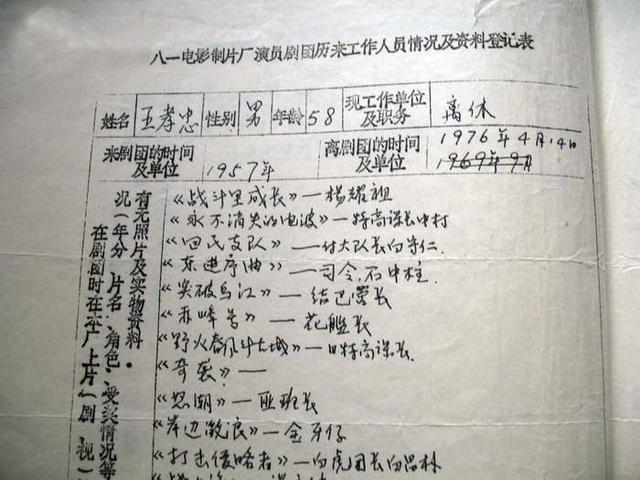 八一电影制片厂演员剧团历来工作人员情况及资料登记表
姓名 王孝忠 性别 男 年龄 58 现工作单位及职务 离休
来剧团的时间及单位 1957年 离剧团的时间及单位 1976年4月14日
1969年9月
有无照片及实物资料。
况(年分、片名、角色、受奖情况等
在剧团时在本厂上片(剧 视)
《战斗里成长》—杨耀祖
《永不消失的电波》—特高课长中村
《回民支队》—付大队长白守仁
《东进序曲》—司令石中柱
《突破乌江》—结巴营长
《赤峰号》—花舰长
《野火春风斗古城》—日特高课长
《奇袭》—
《怒潮》—匪班长
《岸边激浪》—金牙仔
《打击侵略者》—白虎团长白昌林